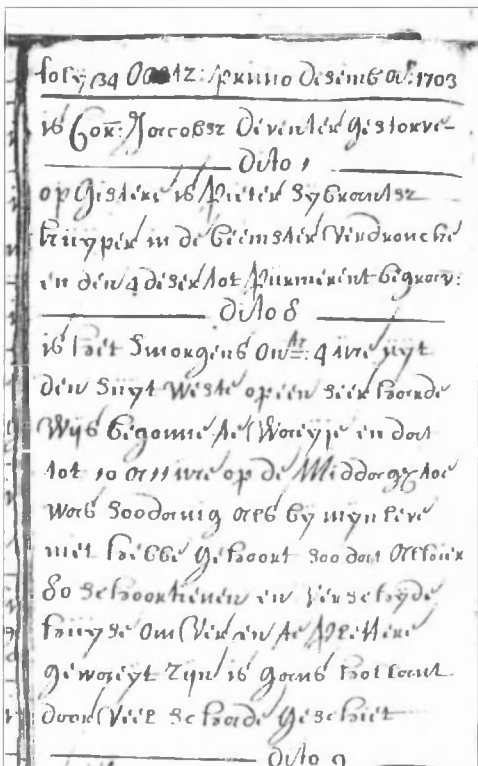 foly 34 Anno Desemb ao: 1703
is Cor: Jacobsz deventer gestorve-
Dito 1
op gistere is Pieter Sybrantsz
kuyper in de Beemster verdroncke
en den 4 deser tot Purmerent begrav:
dito 8
is het smorgens om: 4 ure uyt
den suyt weste op een seer harde
wijs begonne te waeyje en dat
tot 10 a 11 ure op de middagh toe
was soodanig als by myn leve
niet hebbe gehoort soo dat alhier
80 schoorstenen en verscheyde
huyse om ver en te pletter
gewaeyt zijn is gans hollant
door veel schade geschiet
Dito 9